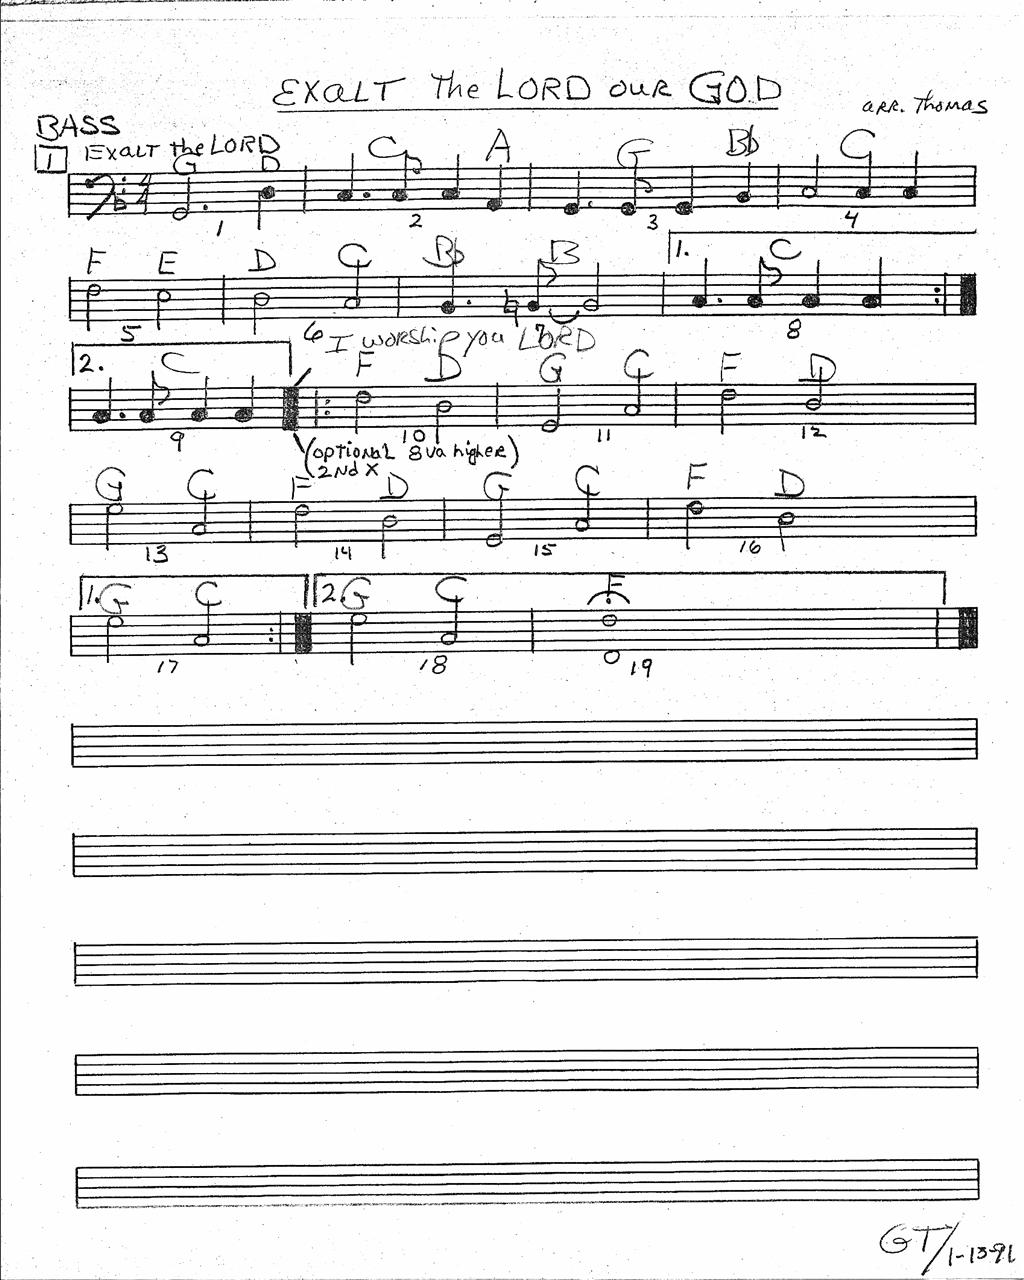 EXALT The LORD OUR GOD
ARR. Thomas
BASS
1 EXALT the LORD
G D C A G Bb C
4
4
1 2 3 4
F E D C Bb B 1. C
5 6 7 8
I worship you LORD
2. C F D G C F D
9 10 11 12
(OPTIONAL 8va higher)
2nd X
G C F D G C F D
13 14 15 16
1. G C 2. G C F
17 18 19
GT/1-13-91